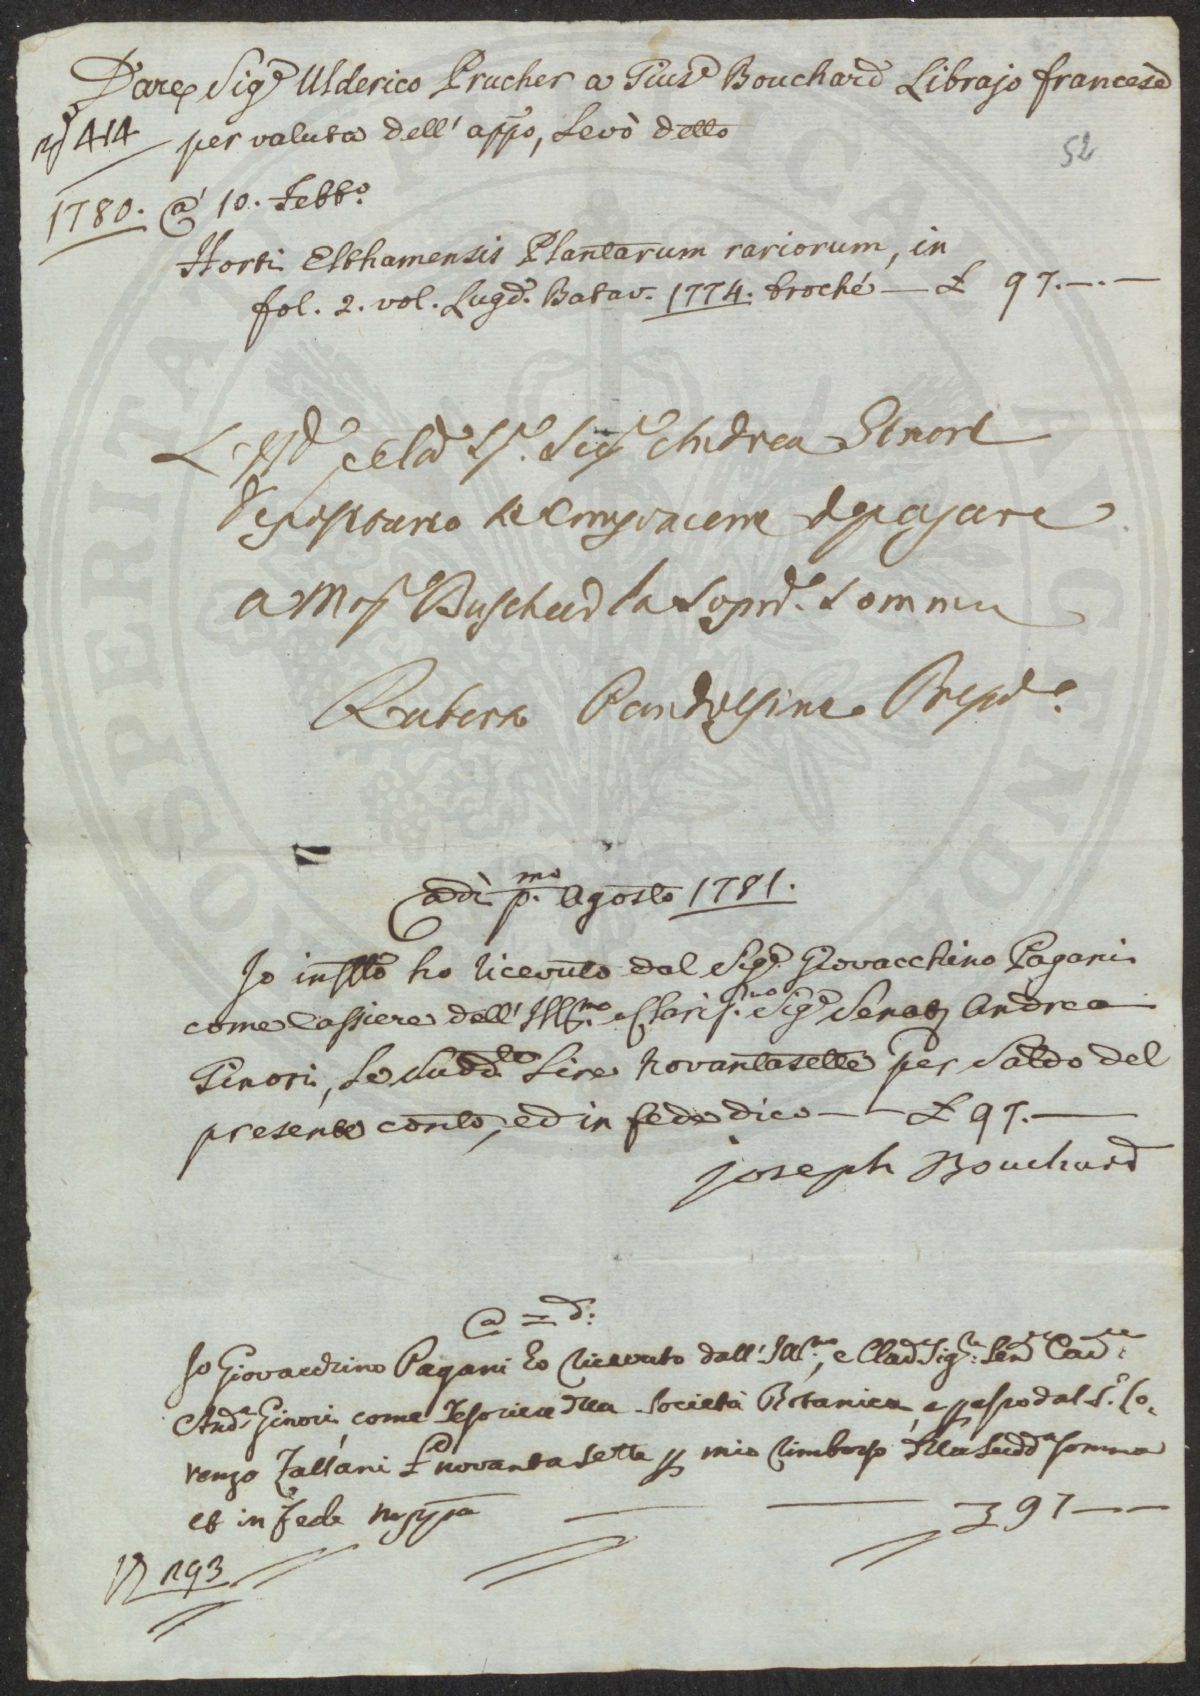 Dare Sig.e Ulderico Prucher a Gius.e Bouchard Librajo francese
52
N 414 per valuta dell' app.o, Levò detto
1780. a 10. Febb.o
Horti Elthamensis Plantarum rariorum, in
fol. 2. vol. Lugd. Batav. 1774. broché — £ 97.—.—
Sig.e Andrea Ginori
pagare
a Buschard la Soprd.a Somma
Ruberto Pandolfini
adì p.mo Agosto 1781.
Io infr̃tto ho ricevuto dal Sig.e Giovacchino Pagani
come Cassiere dell' Ill.mo e Claris.mo Sig.e Senat. Andrea
Ginori, Le Sudd.te Lire Novantasette per Saldo del
presente conto, ed in fede dico — — £ 97.—
Joseph Bouchard
a = d:
Io Giovacchino Pagani ho ricevuto dall' Ill.mo, e Clar. Sig.re Sen.re Cav.re
And.a Ginori come Tesoriere della Società Botanica, e dal S.r Lo-
renzo £ novantasette mio rimborso della Sudd.a somma
et in Fede — — 97 — —
N 293
PROSPERITATI PUBLICAE AUGENDAE